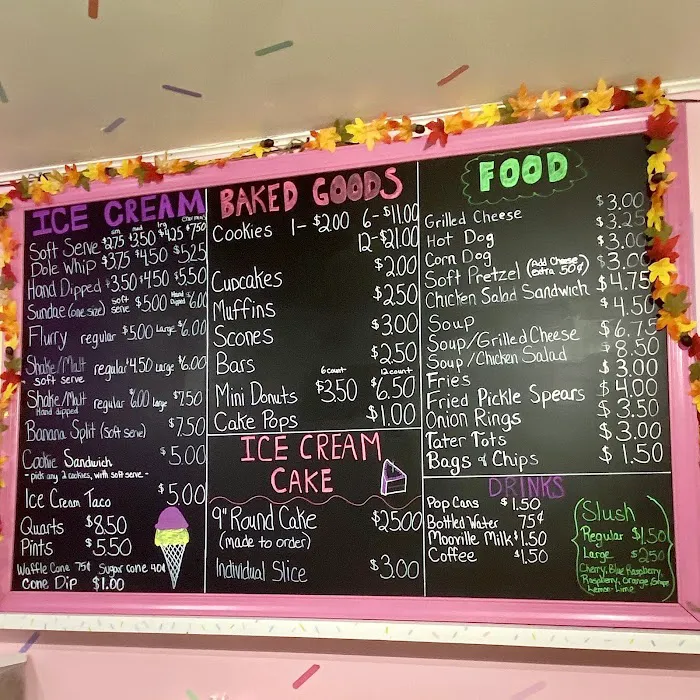 ICE CREAM
sm med lrg
Soft Serve $2.75 $3.50 $4.25 $7.50
Dole Whip $3.75 $4.50 $5.25
Hand Dipped $3.50 $4.50 $5.50
Sundae (one size) soft serve $5.00 Hand Dipped $6.00
Flurry regular $5.00 Large $6.00
Shake/Malt regular $4.50 Large $6.00
- soft serve
Shake/Malt regular $6.00 Large $7.50
Hand dipped
Banana Split (soft serve) $7.50
Cookie Sandwich $5.00
- pick any 2 cookies, with soft serve -
Ice Cream Taco $5.00
Quarts $8.50
Pints $5.50
Waffle Cone 75¢ Sugar Cone 40¢
Cone Dip $1.00
BAKED GOODS
Cookies 1- $2.00 6- $11.00
12- $21.00
Cupcakes $2.00
Muffins $2.50
Scones $3.00
Bars $2.50
6 count 12 count
Mini Donuts $3.50 $6.50
Cake Pops $1.00
ICE CREAM
CAKE
9" Round Cake $25.00
(made to order)
Individual Slice $3.00
FOOD
Grilled Cheese $3.00
Hot Dog $3.25
Corn Dog $3.00
Soft Pretzel (Add Cheese extra 50¢) $3.00
Chicken Salad Sandwich $4.75
Soup $4.50
Soup/Grilled Cheese $6.75
Soup/Chicken Salad $8.50
Fries $3.00
Fried Pickle Spears $4.00
Onion Rings $3.50
Tater Tots $3.00
Bags of Chips $1.50
DRINKS
Pop Cans $1.50
Bottled Water 75¢
Mooville Milk $1.50
Coffee $1.50
Slush
Regular $1.50
Large $2.50
Cherry, Blue Raspberry,
Raspberry, Orange, Grape
Lemon-Lime